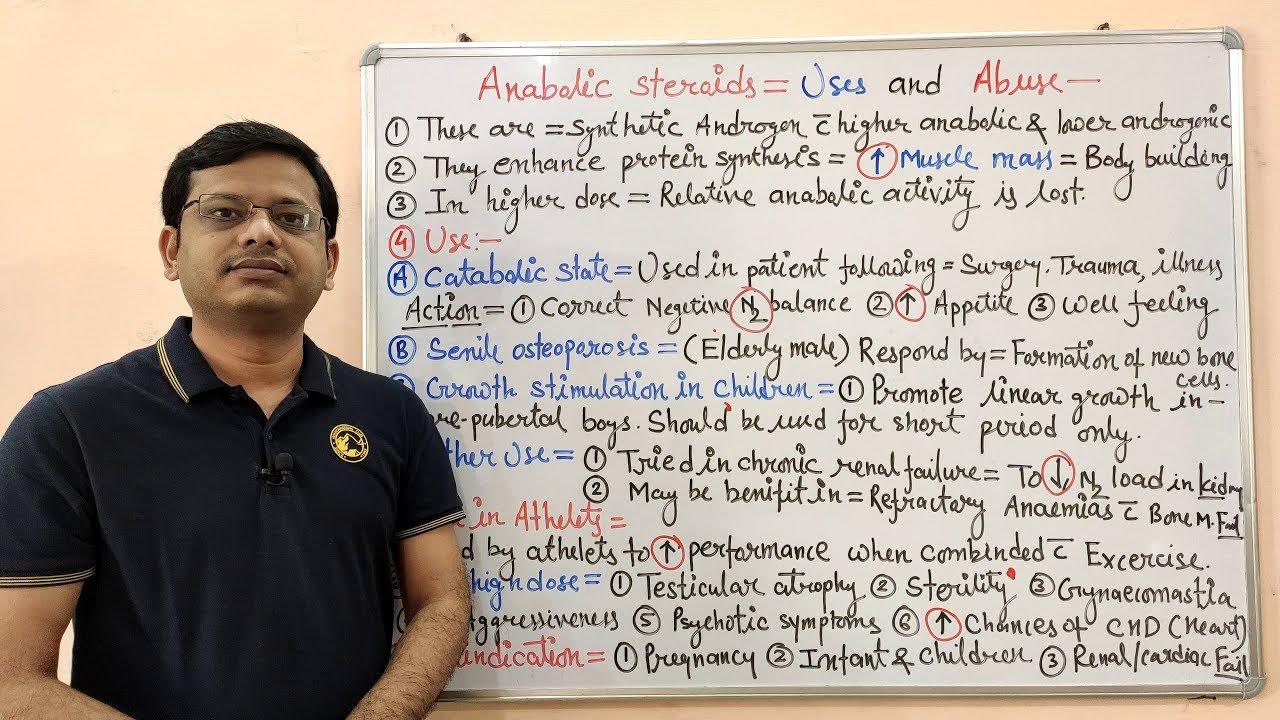 Anabolic steroids = Uses and Abuse —
① These are = Synthetic Androgen c̄ higher anabolic & lower androgenic
② They enhance protein synthesis = ↑ Muscle mass = Body building
③ In higher dose = Relative anabolic activity is lost.
④ Use:—
Ⓐ Catabolic state = Used in patient following = Surgery. Trauma, illness
Action = ① Correct Negetive N₂ balance ② ↑ Appetite ③ Well feeling
Ⓑ Senile osteoporosis = (Elderly male) Respond by = Formation of new bone cells.
Growth stimulation in children = ① Promote linear growth in —
re-pubertal boys. Should be used for short period only.
ther Use = ① Tried in chronic renal failure = To ↓ N₂ load in kidny
② May be benifit in = Refractory Anaemias c̄ Bone M. Fail
in Athelets =
d by athelets to ↑ performance when combinded c̄ Excercise.
high dose = ① Testicular atrophy ② Sterility ③ Gynaecomastia
Aggressiveness ⑤ Psychotic symptoms ⑥ ↑ Chances of CHD (Heart)
indication = ① Pregnancy ② Infant & children ③ Renal/cardiac Fail